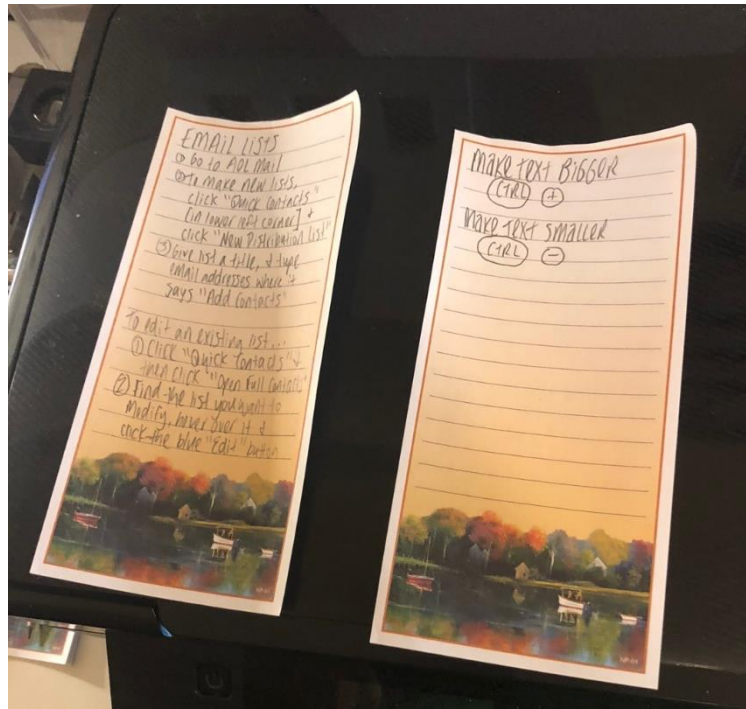 EMAIL LISTS
① Go to AOL Mail
② To make new lists,
click "Quick Contacts"
[in lower left corner] &
click "New Distribution List"
③ Give list a title, & type
email addresses where it
says "Add Contacts"
To edit an existing list...
① Click "Quick Contacts" &
then click "Open Full Contacts"
② Find the list you want to
modify, hover over it &
click the blue "Edit" button
MAKE TEXT BIGGER
CTRL +
MAKE TEXT SMALLER
CTRL -